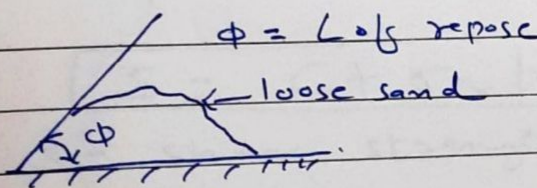 ϕ = ∠ of repose
loose sand
ϕ